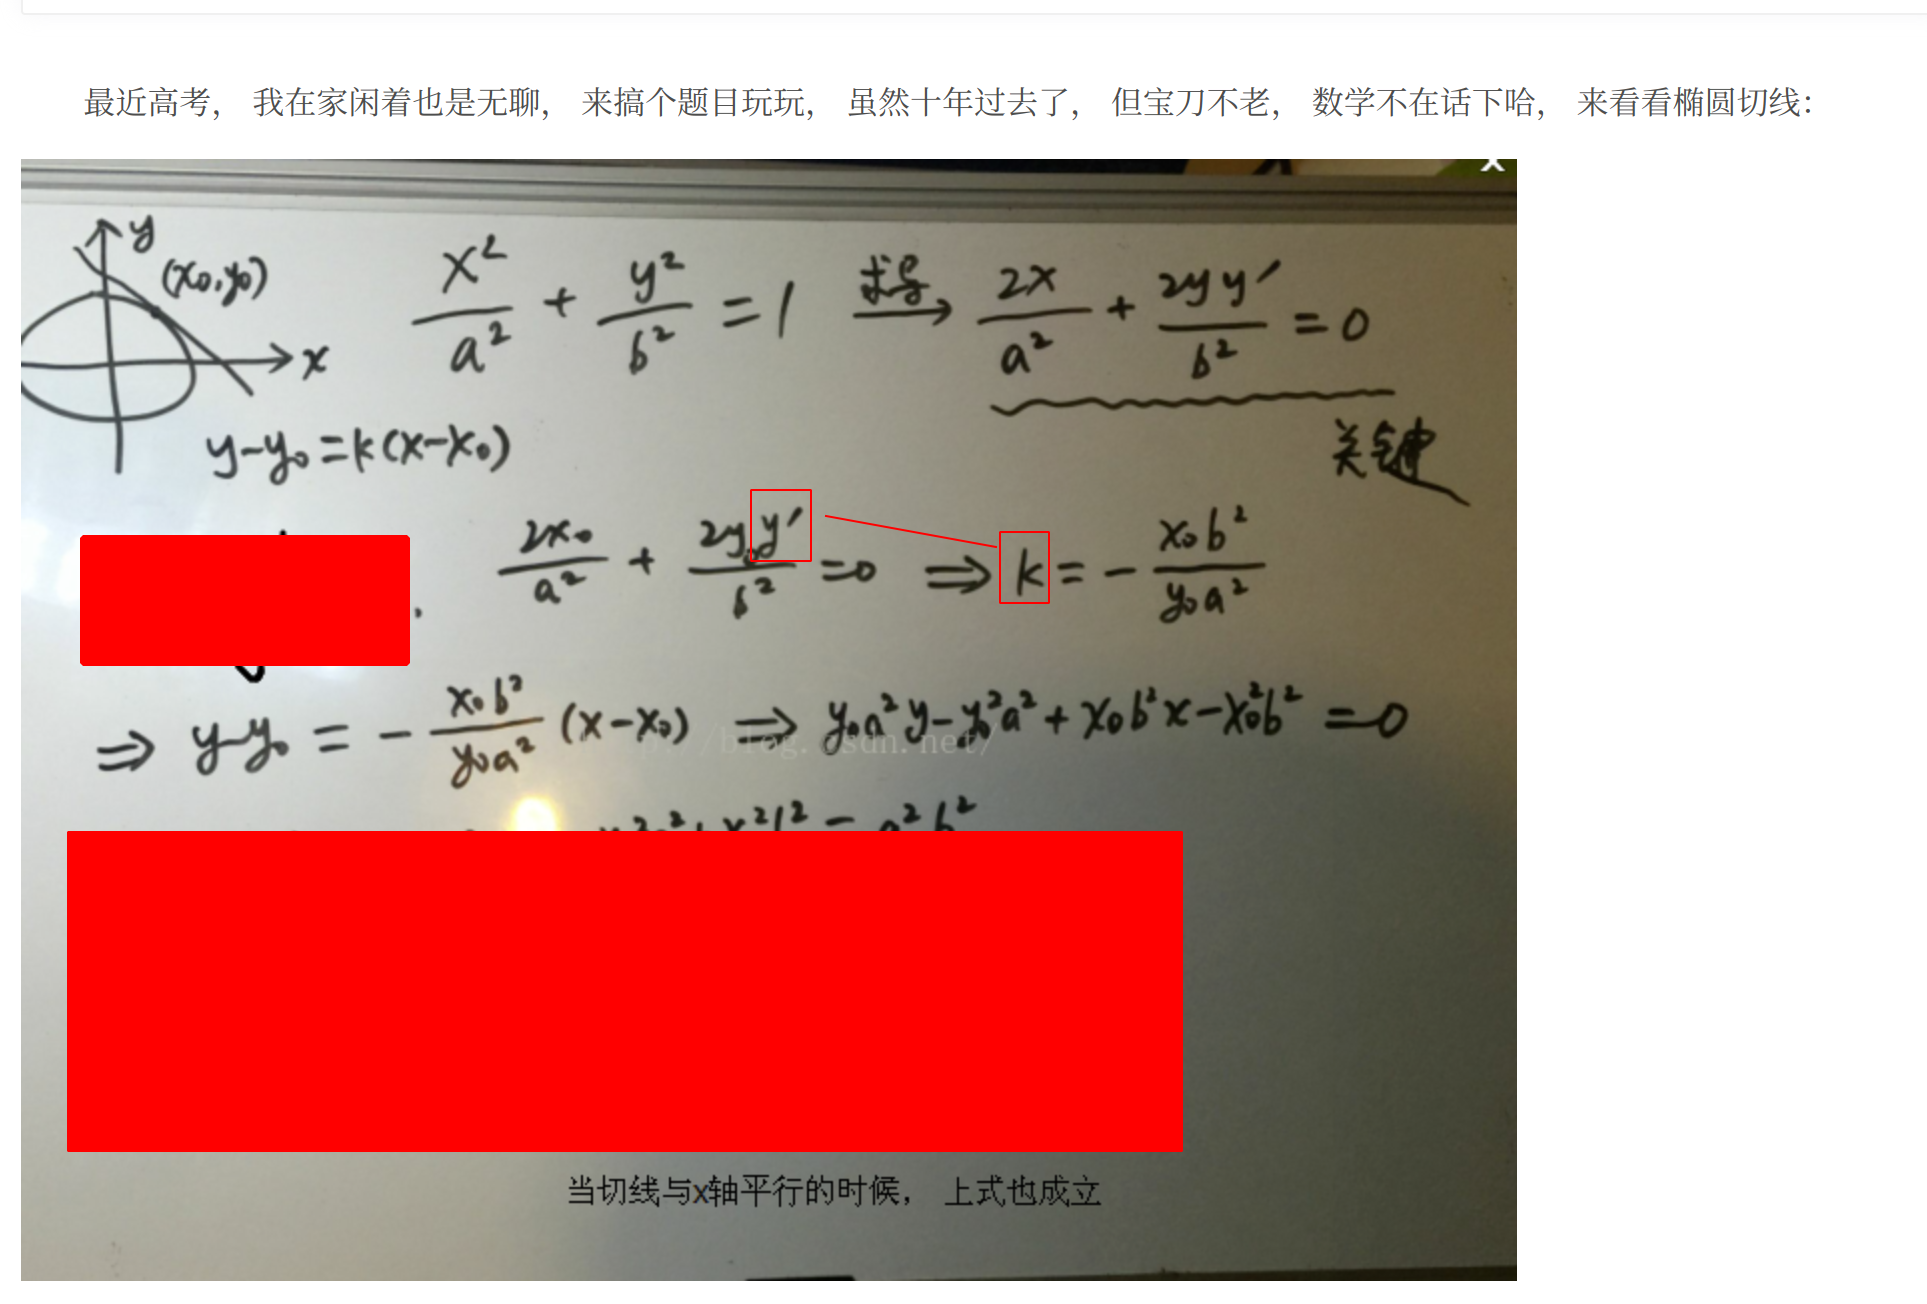 最近高考， 我在家闲着也是无聊， 来搞个题目玩玩， 虽然十年过去了， 但宝刀不老， 数学不在话下哈， 来看看椭圆切线：
y
(x₀,y₀)
x
x²/a² + y²/b² = 1 求导→ 2x/a² + 2yy′/b² = 0
关键
y-y₀=k(x-x₀)
2x₀/a² + 2y₀y′/b² =0 ⇒ k = - x₀b²/y₀a²
⇒ y-y₀ = - x₀b²/y₀a² (x-x₀) ⇒ y₀a²y-y₀²a²+x₀b²x-x₀²b² =0
://blog.csdn.net/
= a²b²
当切线与x轴平行的时候， 上式也成立